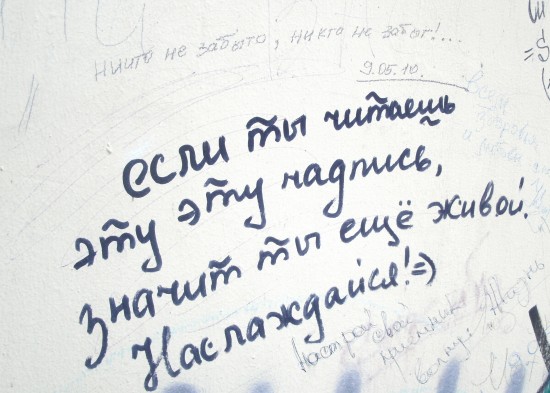 ничто не забыто, никто не забыт!...
9.05.10.
если ты читаешь
эту эту надпись,
значит ты ещё живой.
Наслаждайся!=)
Настрой свой
приёмник на
волну: "Жизнь
всем